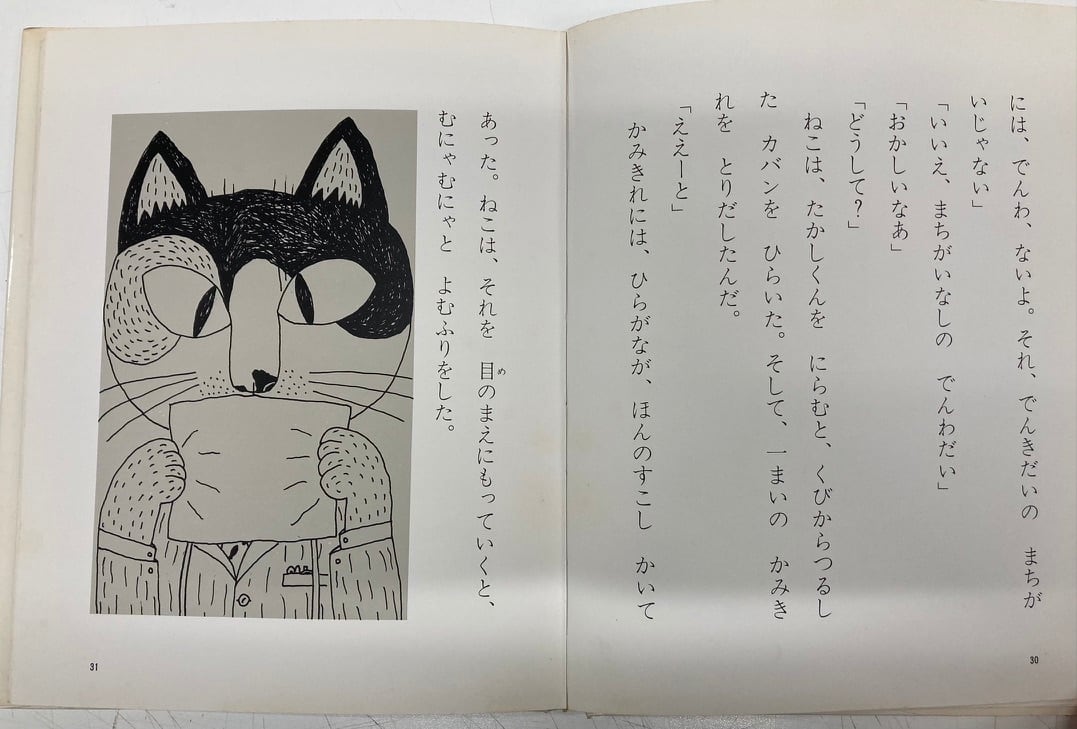 には、でんわ、ないよ。それ、でんきだいの　まちが
いじゃない」
「いいえ、まちがいなしの　でんわだい」
「おかしいなあ」
「どうして？」
ねこは、たかしくんを　にらむと、くびからつるし
た　カバンを　ひらいた。そして、一まいの　かみき
れを　とりだしたんだ。
「ええーと」
かみきれには、ひらがなが、ほんのすこし　かいて
30
あった。ねこは、それを　目のまえにもっていくと、
め
むにゃむにゃと　よむふりをした。
31